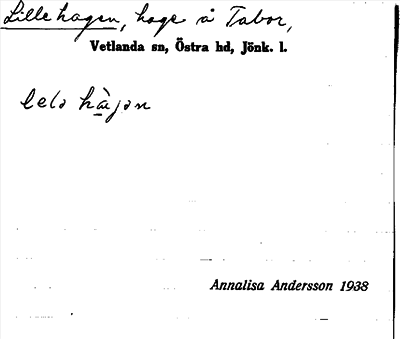 Lillehagen, hage å Tabor,
Vetlanda sn, Östra hd, Jönk. l.
hàgən
Annalisa Andersson 1938